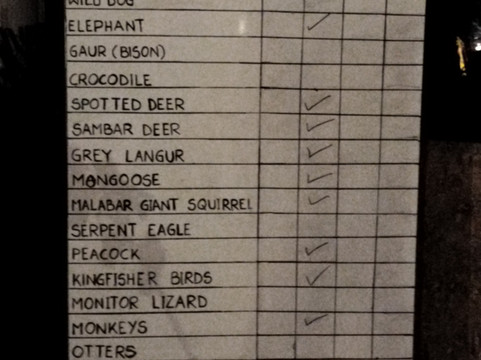 WILD DOG
ELEPHANT
GAUR (BISON)
CROCODILE
SPOTTED DEER
SAMBAR DEER
GREY LANGUR
MONGOOSE
MALABAR GIANT SQUIRREL
SERPENT EAGLE
PEACOCK
KINGFISHER BIRDS
MONITOR LIZARD
MONKEYS
OTTERS